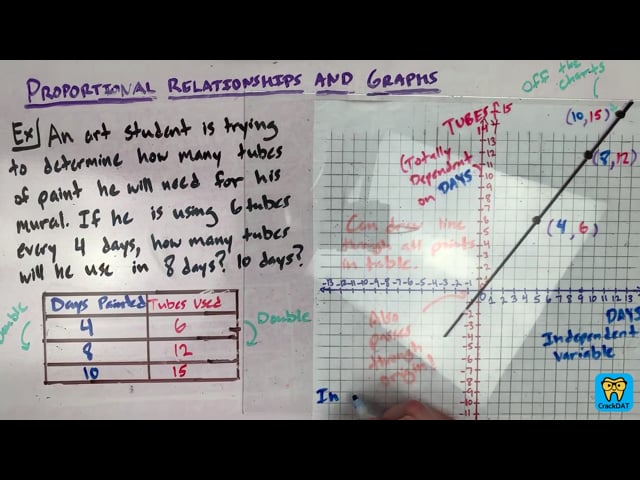 PROPORTIONAL RELATIONSHIPS AND GRAPHS
Ex An art student is trying
to determine how many tubes
of paint he will need for his
mural. If he is using 6 tubes
every 4 days, how many tubes
will he use in 8 days? 10 days?
Days Painted Tubes Used
4 6
8 12
10 15
Double
Double
off the
charts
TUBES 15
(Totally
Dependent
on DAYS)
(10,15)
(8,12)
(4,6)
Can draw line
through all points
in table.
Also
passes
through
origin!
-13 -12 -11 -10 -9 -8 -7 -6 -5 -4 -3 -2 -1 0 1 2 3 4 5 6 7 8 9 10 11 12 13
DAYS
Independent
variable
In
CrackDAT